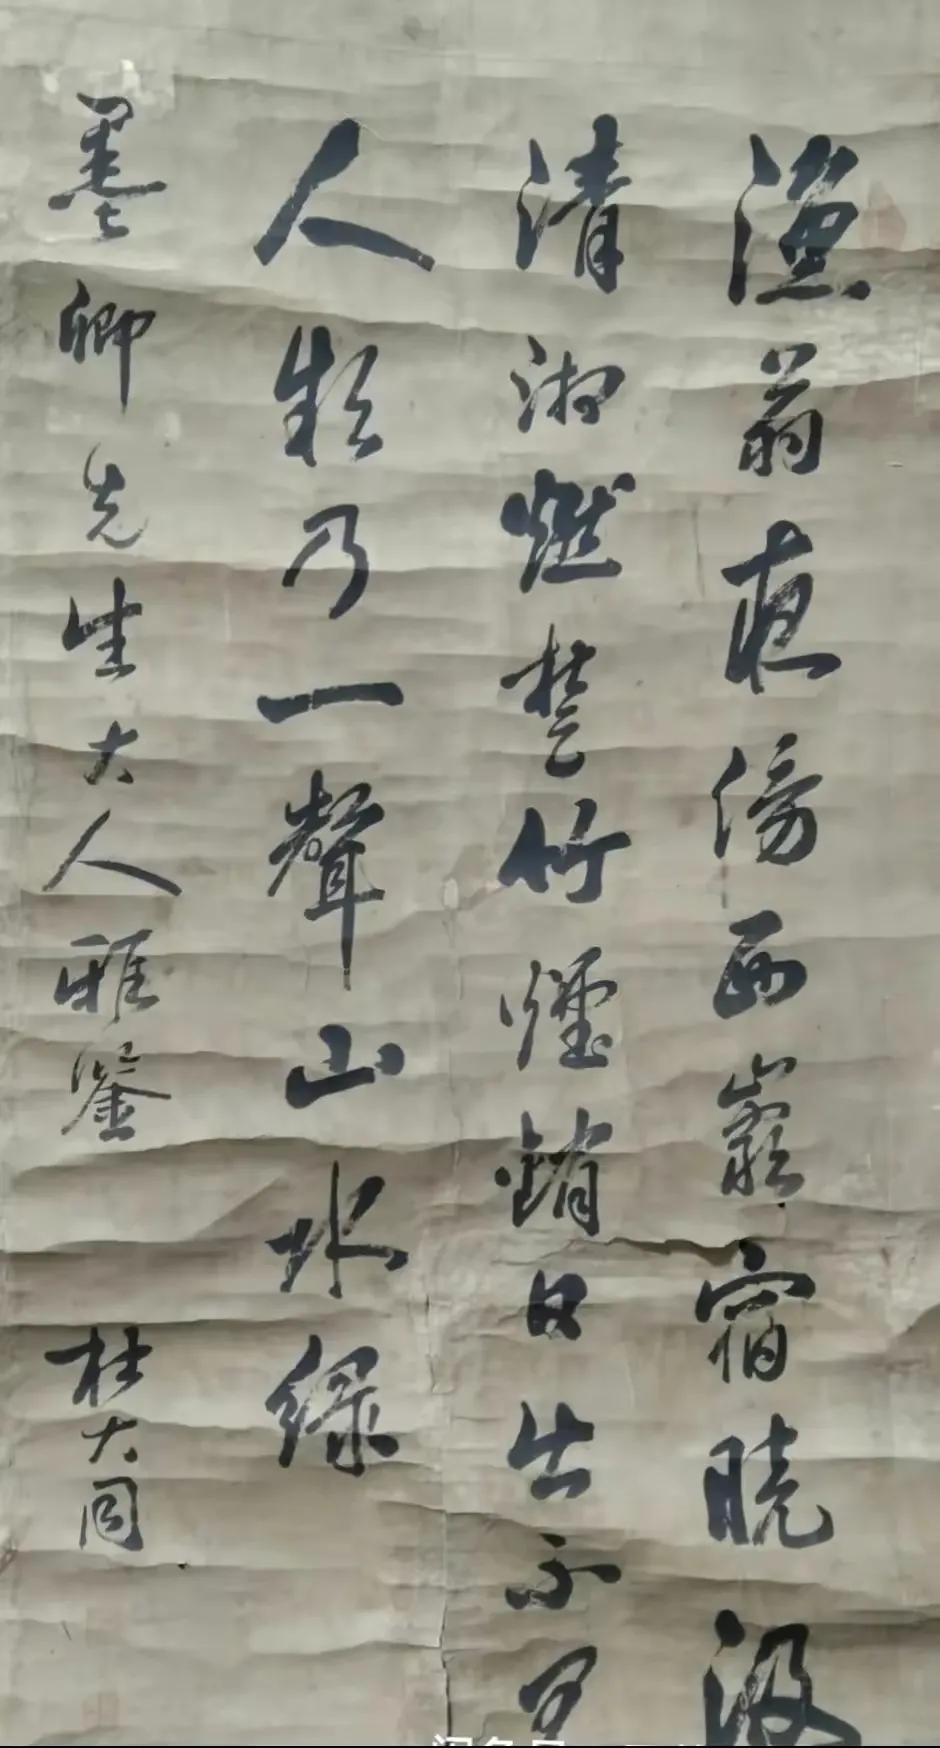 漁翁夜傍西巖宿曉汲
清湘燃楚竹煙銷日出不見
人欸乃一聲山水綠
墨卿先生大人雅鉴
杜大同